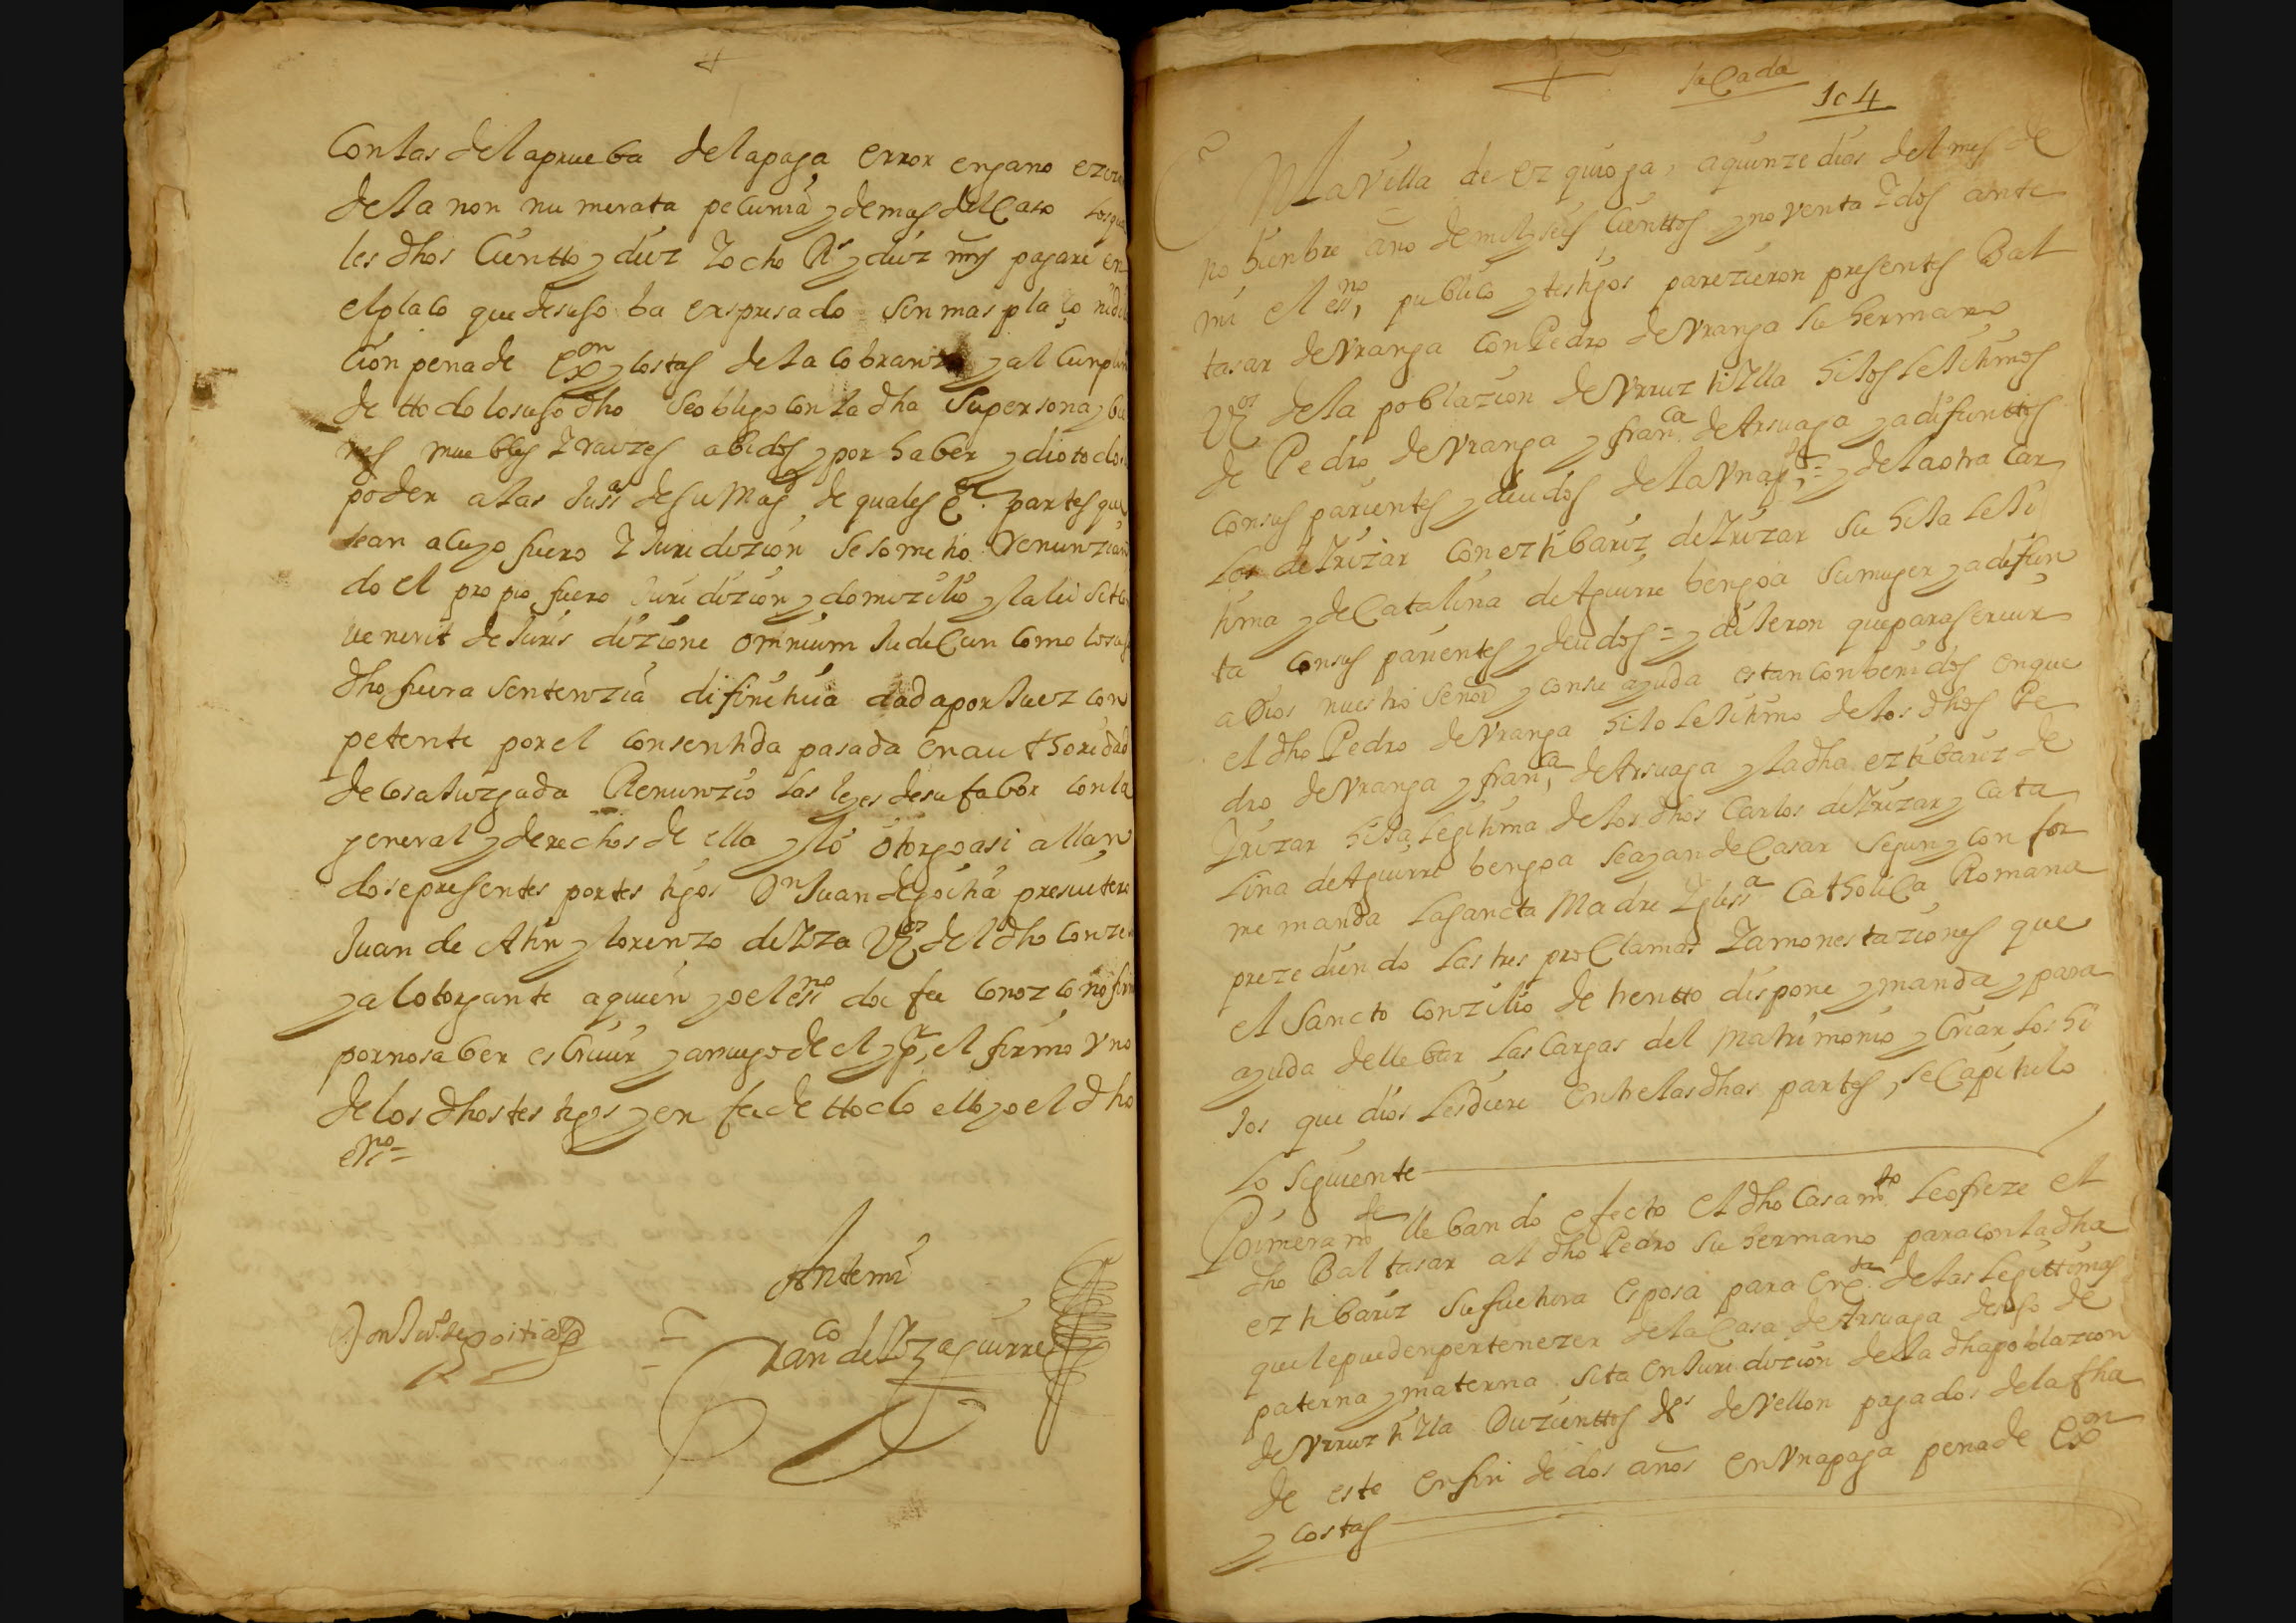 Con las de la prueba de la paga error engano
de la non numerata pecunia y demas del caso
les dhos cientto y diez y ocho Rs y diez mrs pagare en
el plaço que de suso ba erspresado sin mas plaço ni
cion pena de exon y costas de la cobranza y al cunpli
de ttodo lo suso dho se obligo con la dha su persona y bie
nes muebles y raizes abidos y por haber y dio todo
poder a las Jussas de su Magd de qualesqr partes que
sean a cuyo fuero y Juridizion se sometio renunzian
do el propio fuero Juridizion y domizilio y la lei sit con
venerit de Juris dizione omnium Judicun como lo suso
dho fuera sentenzia difinitiua dada por Juez con
petente por el consentida pasada en authoridad
de cosa Juzgada Renunzio las leyes de su fabor con la
general y derechos de ella y lo otorgo asi allan
dose presentes por testigos Dn Juan de goitia presuitero
Juan de Atin y lorenzo de Yza Vos del dho conze
y al otorgante a quien yo el essno doi fee conozco no firmo
por no saber escriuir y a ruego de el y pr el firmo vno
de los dhos testigos y en fee de ttodo ello yo el dho
essno =
Ante mi
Don Jua de goitia
Franco de Yzaguirre
sacada
104
En la Villa de ezquioga, a quinze dias del mes de
nobienbre año de mil y seis cienttos y noventa y dos ante
mi el essno, publico y testigos parezieron presentes Bal
tasar de Vranga con Pedro de Vranga su hermano
Vos de la poblazion de Vrruztizlla hijos lejitimos
de Pedro de Vranga y Franca de Arsuaga ya difunttos
con sus parientes y deudos de la vna pte = y de la otra Car
los de Yrizar con eztibariz de Yrizar su hija leji
tima y de Catalina de Aguirre bengoa su muger ya difun
ta con sus parientes y deudos = y dijeron que para seruir
a Dios nuestro Señor y con su ayuda estan conbenidos en que
el dho Pedro de Vranga hijo lejitimo de los dhos Pe
dro de Vranga y franca, de Arsuaga y la dha eztibariz de
Yrizar hija legitima de los dhos Carlos de Yrizar y Cata
lina de Aguirre bengoa se ayan de Casar segun y confor
me manda la sancta Madre Yglessa Catholica Romana
prezediendo las tres proclamas y amonestaziones que
el Sancto Conzilio de trentto dispone y manda y para
ayuda de llebar las cargas del matrimonio y criar los hi
jos que dios les diere entre las dhas partes, se Capitulo
lo siguiente
Primeramte llebando efecto el dho Casamto le ofreze el
dho Baltasar al dho Pedro su hermano para con la dha
eztibariz su futura esposa para en qta de las legittimas
que le pueden pertenezer de la Casa de Arsuaga de suso de
paterna y materna sita en Juridizion de la dha poblazion
de Vrruztizlla Duzienttos ds de vellon pagados de la fha
de este en fin de dos años en vna paga pena de exon
y costas